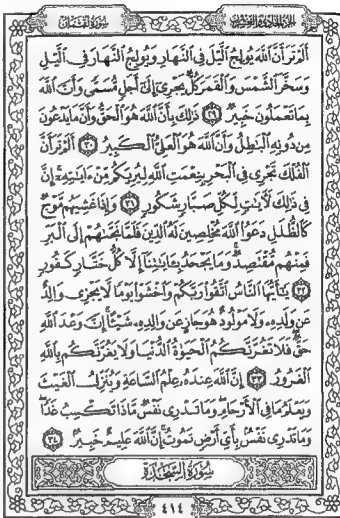 الجزء الحادي والعشرون سورة لقمان
أَلَمْ تَرَ أَنَّ ٱللَّهَ يُولِجُ ٱلَّيْلَ فِي ٱلنَّهَارِ وَيُولِجُ ٱلنَّهَارَ فِي ٱلَّيْلِ
وَسَخَّرَ ٱلشَّمْسَ وَٱلْقَمَرَ كُلٌّ يَجْرِيٓ إِلَىٰٓ أَجَلٍ مُّسَمًّى وَأَنَّ ٱللَّهَ
بِمَا تَعْمَلُونَ خَبِيرٌ ٢٩ ذَٰلِكَ بِأَنَّ ٱللَّهَ هُوَ ٱلْحَقُّ وَأَنَّ مَا يَدْعُونَ
مِن دُونِهِ ٱلْبَٰطِلُ وَأَنَّ ٱللَّهَ هُوَ ٱلْعَلِيُّ ٱلْكَبِيرُ ٣٠ أَلَمْ تَرَ أَنَّ
ٱلْفُلْكَ تَجْرِي فِي ٱلْبَحْرِ بِنِعْمَتِ ٱللَّهِ لِيُرِيَكُم مِّنْ ءَايَٰتِهِۦٓ إِنَّ
فِي ذَٰلِكَ لَءَايَٰتٍ لِّكُلِّ صَبَّارٍ شَكُورٍ ٣١ وَإِذَا غَشِيَهُم مَّوْجٌ
كَٱلظُّلَلِ دَعَوُاْ ٱللَّهَ مُخْلِصِينَ لَهُ ٱلدِّينَ فَلَمَّا نَجَّىٰهُمْ إِلَى ٱلْبَرِّ
فَمِنْهُم مُّقْتَصِدٌ وَمَا يَجْحَدُ بِـَٔايَٰتِنَآ إِلَّا كُلُّ خَتَّارٍ كَفُورٍ
٣٢ يَٰٓأَيُّهَا ٱلنَّاسُ ٱتَّقُواْ رَبَّكُمْ وَٱخْشَوْاْ يَوْمًا لَّا يَجْزِي وَالِدٌ
عَن وَلَدِهِۦ وَلَا مَوْلُودٌ هُوَ جَازٍ عَن وَالِدِهِۦ شَيْـًٔا إِنَّ وَعْدَ ٱللَّهِ
حَقٌّ فَلَا تَغُرَّنَّكُمُ ٱلْحَيَوٰةُ ٱلدُّنْيَا وَلَا يَغُرَّنَّكُم بِٱللَّهِ
ٱلْغَرُورُ ٣٣ إِنَّ ٱللَّهَ عِندَهُۥ عِلْمُ ٱلسَّاعَةِ وَيُنَزِّلُ ٱلْغَيْثَ
وَيَعْلَمُ مَا فِي ٱلْأَرْحَامِ وَمَا تَدْرِي نَفْسٌ مَّاذَا تَكْسِبُ غَدًا
وَمَا تَدْرِي نَفْسٌۢ بِأَيِّ أَرْضٍ تَمُوتُ إِنَّ ٱللَّهَ عَلِيمٌ خَبِيرٌۢ ٣٤
سُورَةُ السَّجْدَة
٤١٤